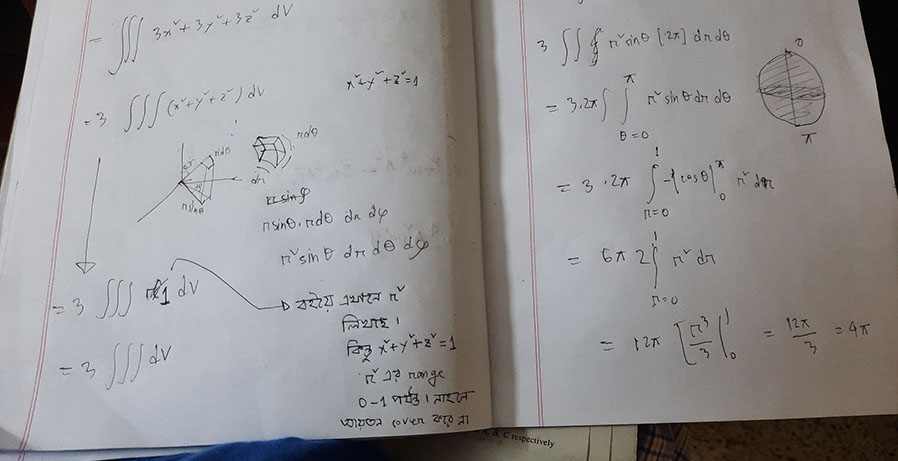 = ∭ 3x² + 3y² + 3z² dV
= 3 ∭ (x² + y² + z²) dV
x² + y² + z² = 1
rdθ
rdθ
dr
rsinθ
r sinφ
rsinθ. rdθ dr dφ
r² sinθ dr dθ dφ
= 3 ∭ 1 dV
বইয়ে এখানে r²
লিখছে।
কিন্তু x² + y² + z² = 1
r² এর range
0-1 পর্যন্ত। নাহলে
আয়তন cover করে না
= 3 ∭ dV
3 ∫∫ r² sinθ [2π] dr dθ
0
π
= 3.2π ∫ ∫ π θ=0 r² sinθ dr dθ
= 3.2π ∫ 1 r=0 -[cosθ] π 0 r² dr
= 6π 2 ∫ 1 r=0 r² dr
= 12π [r³/3] 1 0 = 12π/3 = 4π
B, C respectively